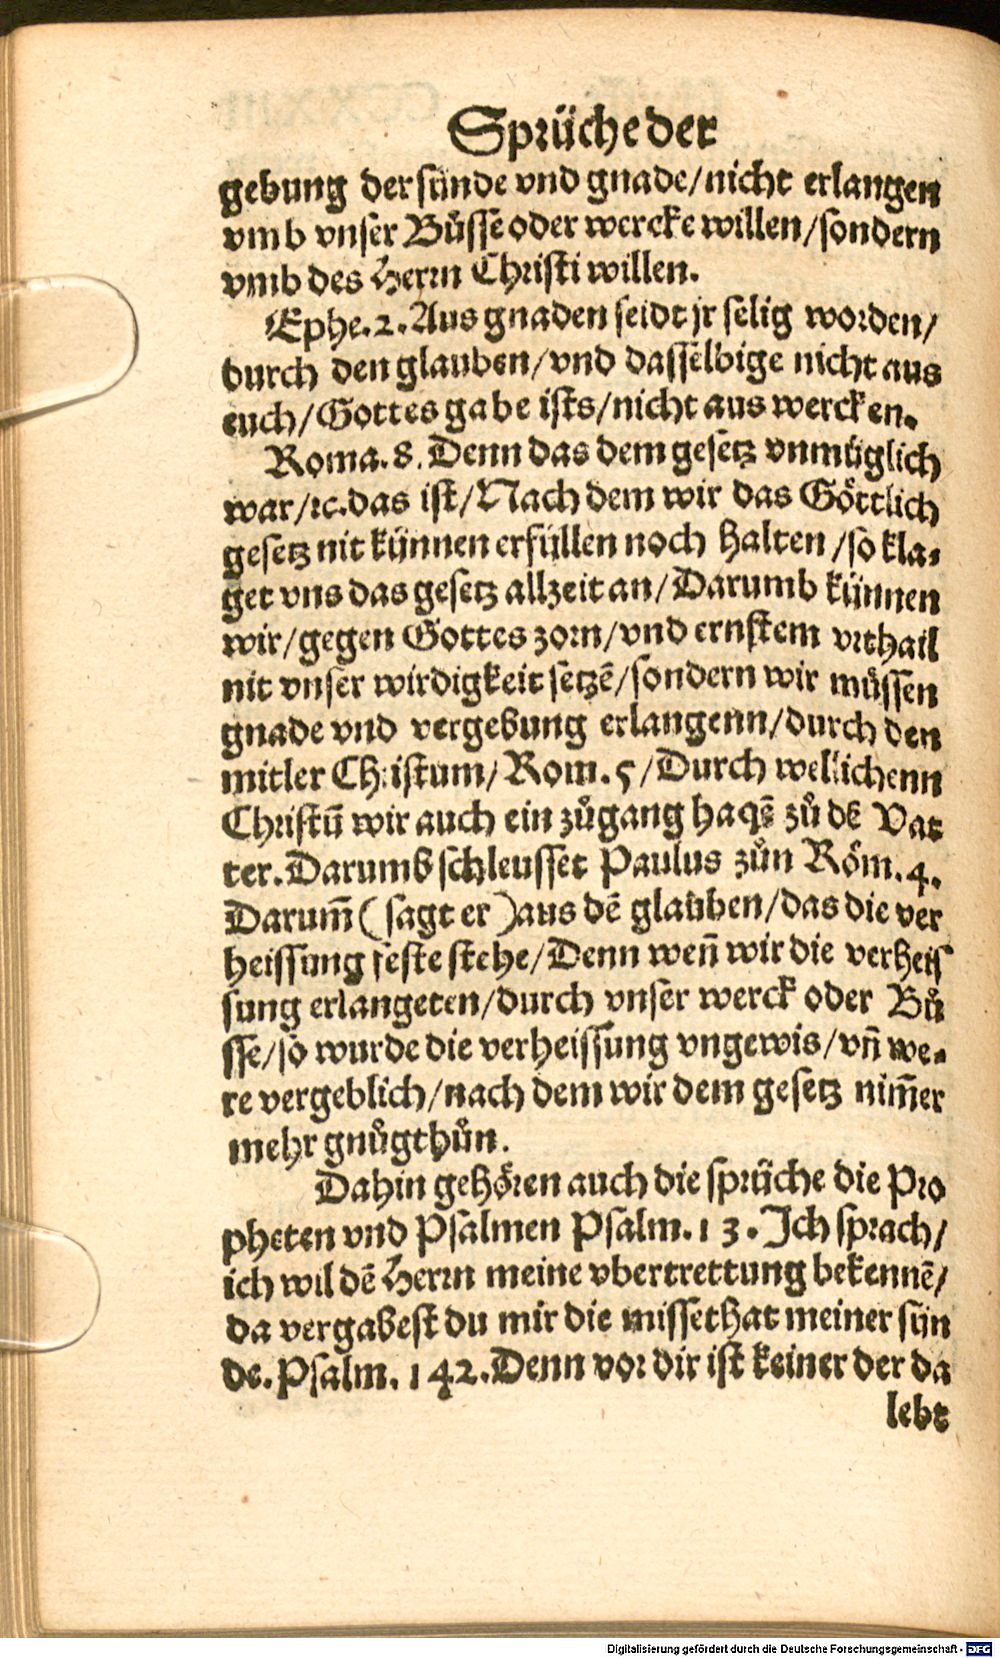 Sprüche der
gebung der sünde vnd gnade/nicht erlangen
vmb vnser Bůsse oder wercke willen/sondern
vmb des Herrn Christi willen.
Ephe.2. Aus gnaden seidt jr selig worden/
durch den glauben/vnd dasselbige nicht aus
euch/Gottes gabe ists/nicht aus wercken.
Roma.8. Denn das dem gesetz vnmüglich
war/ꝛc.das ist/Nach dem wir das Göttlich
gesetz nit künnen erfüllen noch halten/so kla-
get vns das gesetz allzeit an/Darumb künnen
wir/gegen Gottes zorn/vnd ernstem vrthail
nit vnser wirdigkeit setzē/sondern wir müssen
gnade vnd vergebung erlangenn/durch den
mitler Christum/Rom.5/Durch wellichenn
Christū wir auch ein zůgang haqē zů dē Vat
ter.Darumb schleusset Paulus zůn Röm.4.
Darum̄(sagt er)aus dē glauben/das die ver
heissung feste stehe/Denn wen̄ wir die verheis
sung erlangeten/durch vnser werck oder Bů
sse/so wurde die verheissung vngewis/vn̄ we-
re vergeblich/nach dem wir dem gesetz nim̄er
mehr gnůgthůn.
Dahin gehören auch die sprüche die Pro
pheten vnd Psalmen Psalm.13.Ich sprach/
ich wil dē Herrn meine vbertrettung bekennē/
da vergabest du mir die missethat meiner sün
de.Psalm.142.Denn vor dir ist keiner der da
lebt
Digitalisierung gefördert durch die Deutsche Forschungsgemeinschaft - DFG